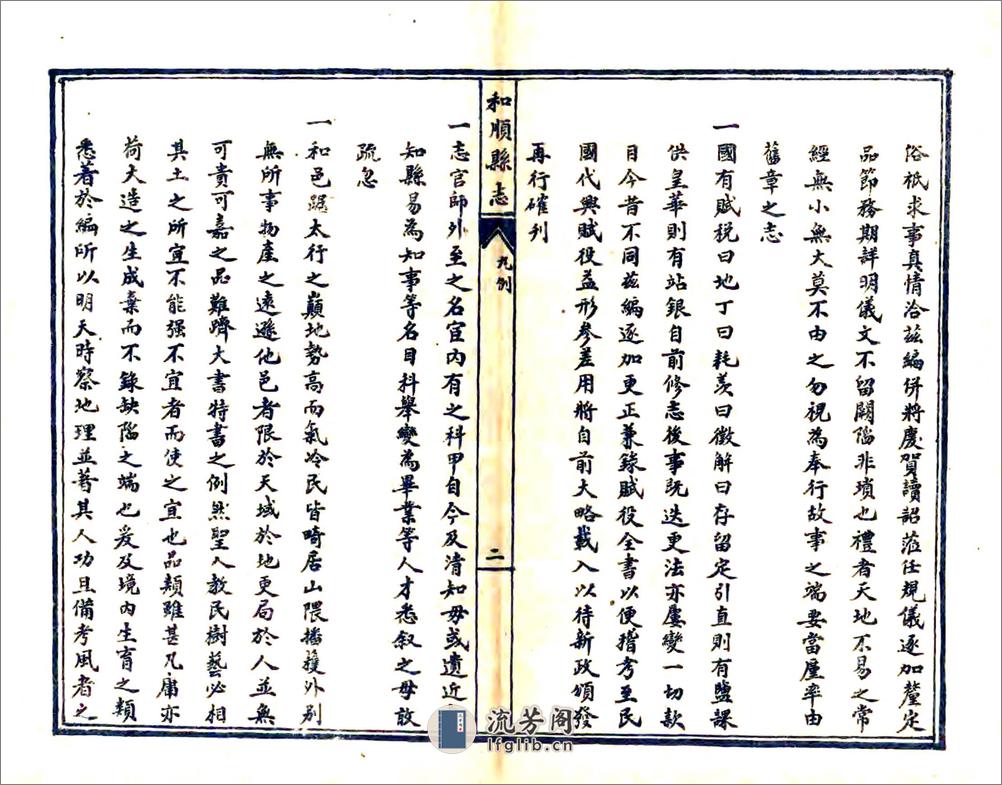 俗祇求事真情洽茲編併將慶賀讀詔蒞任規儀逐加釐定
品節務期詳明儀文不留闕陷非瑣也禮者天地不易之常
經無小無大莫不由之勿視為奉行故事之端要當屋率由
舊章之志
一國有賦稅曰地丁曰耗羨曰徵解曰存留定引直則有鹽課
供皇華則有站銀自前修志後事既迭更法亦屢變一切款
目今昔不同茲編逐加更正兼錄賦役全書以便稽考至民
國代興賦役益形參差用將自前大略載入以待新政頒發
再行確刋
和順縣志
凡例
二
一志官師外至之名宦內有之科甲自今及清知毋或遺近
知縣易為知事等名目科舉變為畢業等人才悉叙之毋敢
疏忽
一和邑踞太行之巔地勢高而氣冷民皆畸居山隈播擭外別
無所事物產之遠遜他邑者限於天域於地更局於人並無
可貴可嘉之品難躋大書特書之例然聖人教民樹藝必相
其土之所宜不能强不宜者而使之宜也品類雖甚凡庸亦
荷大造之生成棄而不錄缺陷之端也爰及境內生育之類
悉著於編所以明天時察地理並著其人功且備考風者之
流芳阁
lfglib.cn